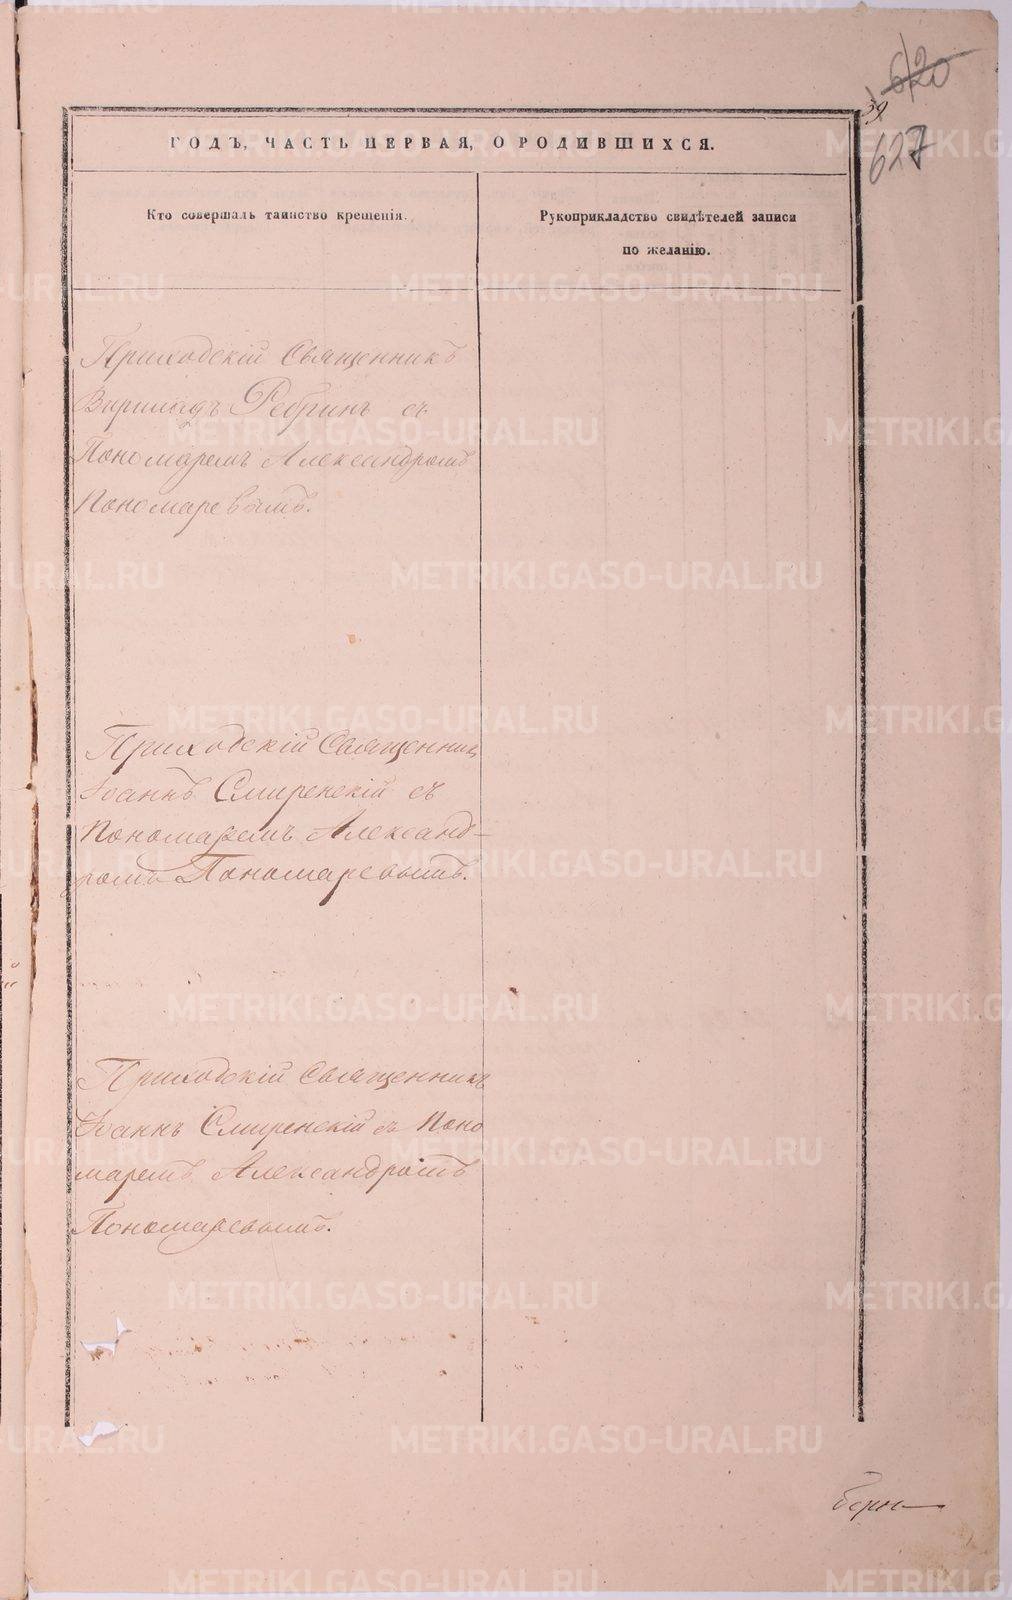 620
39
627
ГОДЪ, ЧАСТЬ ПЕРВАЯ, О РОДИВШИХСЯ.
Кто совершалъ таинство крещенія.
Рукоприкладство свидѣтелей записи
по желанію.
Приходскій Священникъ
Ребринъ съ
Пономаремъ Александромъ
Пономаревымъ.
Приходскій Священник
Іоаннъ Смиренскій съ
Пономаремъ Александ-
ромъ Пономаревымъ.
Приходскій Священникъ
Іоаннъ Смиренскій съ Поно
маремъ Александромъ
Пономаревымъ.
METRIKI.GASO-URAL.RU